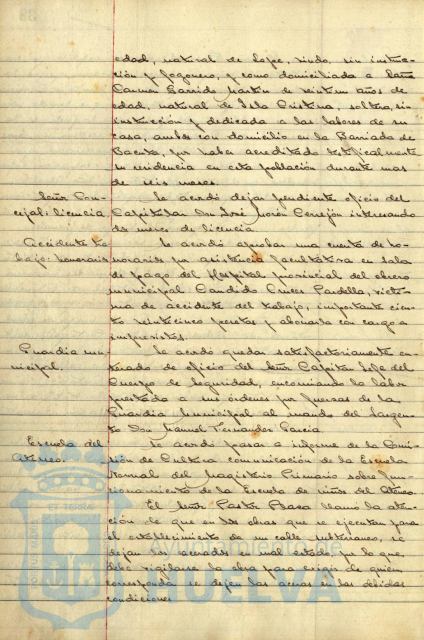 edad, natural de Lepe, viudo, sin instruc-
ción y fogonero, y como domiciliada a
Carmen Garrido Martín de veintiun años de
edad, natural de Isla Cristina, soltera, sin
instrucción y dedicada a las labores de su
casa, ambos con domicilio en la Barriada de
por haber acreditado testificalmente
su residencia en esta población durante mas
de seis meses.
Señor Con-
cejal: licencia
Se acordó dejar pendiente oficio del
Capitular Don José Morón Cerrejón interesando
dos meses de licencia
Accidente tra-
bajo: honorarios
Se acordó aprobar una cuenta de ho-
norarios por asistencia facultativa en sala
de pago del Hospital provincial del obrero
municipal Candido Cruces Pardella, vícti-
ma de accidente del trabajo, importante cien-
to veinticinco pesetas y abonarla con cargo a
imprevistos.
Guardia mu-
nicipal.
Se acordó quedar satisfactoriamente en-
terado de oficio del Señor Capitan Jefe del
Cuerpo de Seguridad, encomiando la labor
prestada a sus órdenes por fuerzas de la
Guardia Municipal al mando del Sargen-
to Don Manuel Fernandez García
Escuela del
Ateneo.
Se acordó pasar a informe de la Comi-
sión de Cultura comunicación de la Escuela
Normal del Magisterio Primario sobre fun-
cionamiento de la Escuela de niños del Ateneo.
El Señor Pastor llamó la aten-
ción de que en las obras que se ejecutan para
el establecimiento de un cable subterraneo, se
dejan los acerados en mal estado por lo que
debe vigilarse la obra para exigir de quien
corresponda se dejen las aceras en las debidas
condiciones
Ayuntamiento de
HUELVA